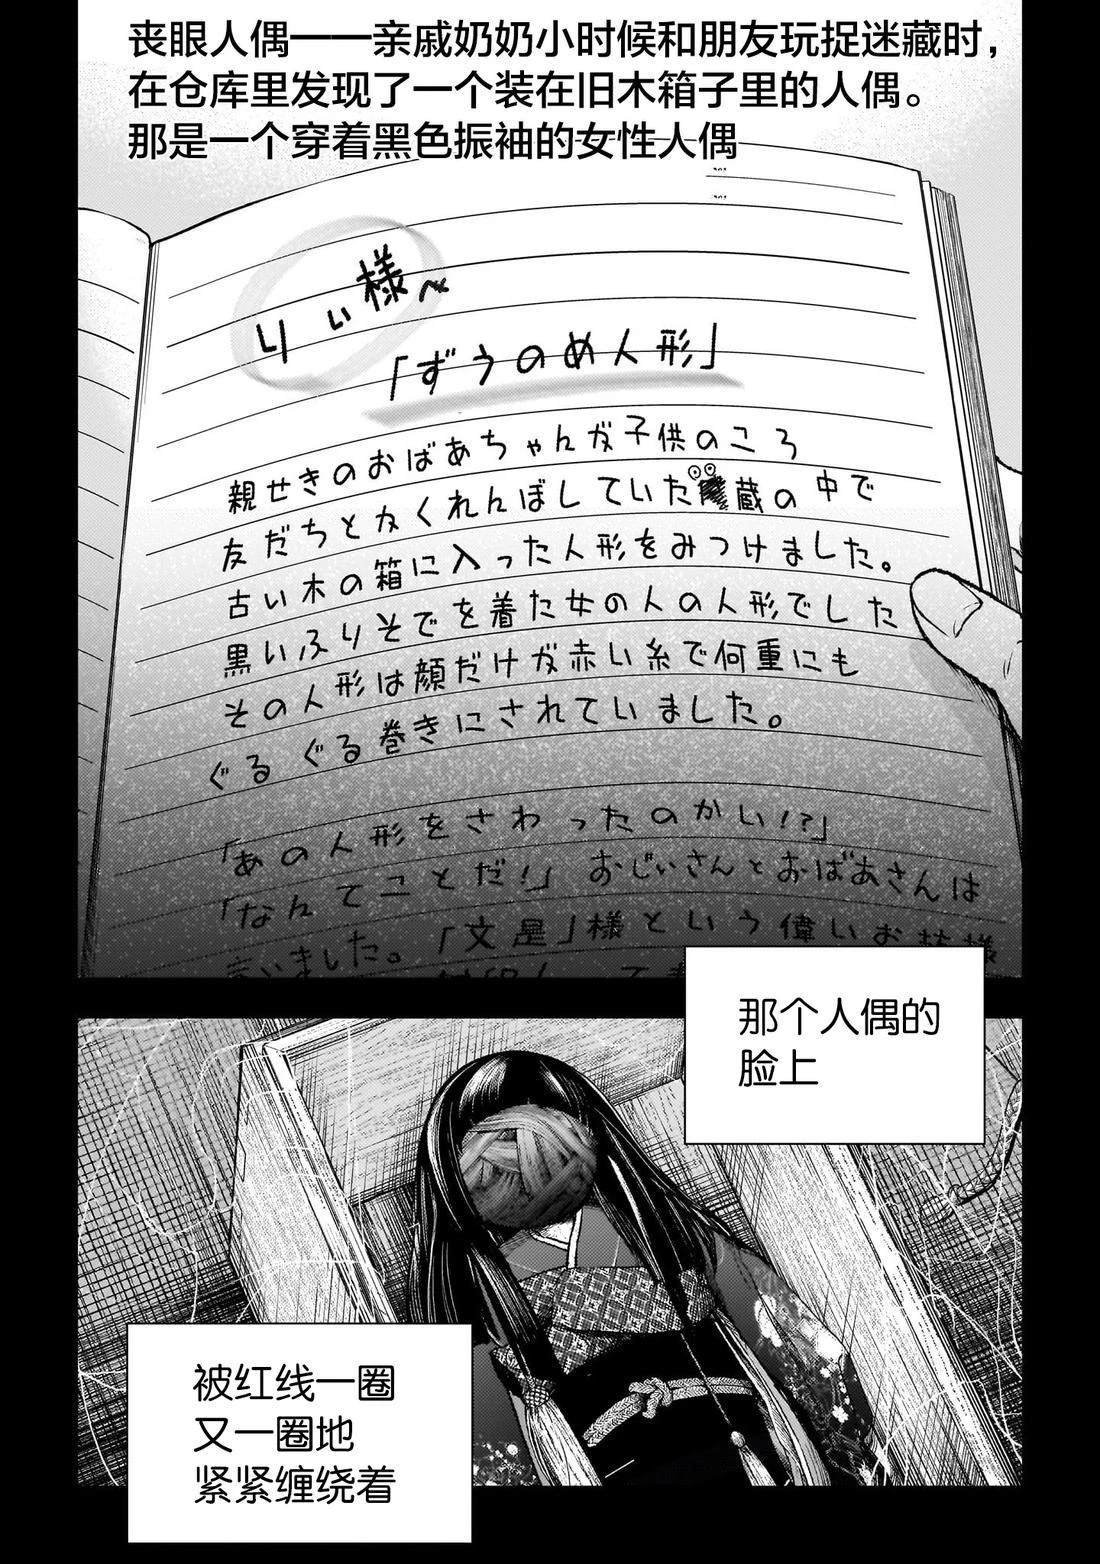 丧眼人偶——亲戚奶奶小时候和朋友玩捉迷藏时，
在仓库里发现了一个装在旧木箱子里的人偶。
那是一个穿着黑色振袖的女性人偶
りぃ様～
「ずうのめ人形」
親せきのおばあちゃんが子供のころ
友だちとかくれんぼしていた蔵の中で
古い木の箱に入った人形をみつけました。
黒いふりそでを着た女の人の人形でした
その人形は顔だけが赤い糸で何重にも
ぐるぐる巻きにされていました。
「あの人形をさわったのかい!?」
「なんてことだ!」おじいさんとおばあさんは
言いました。「文是」様という偉いお
那个人偶的
脸上
被红线一圈
又一圈地
紧紧缠绕着